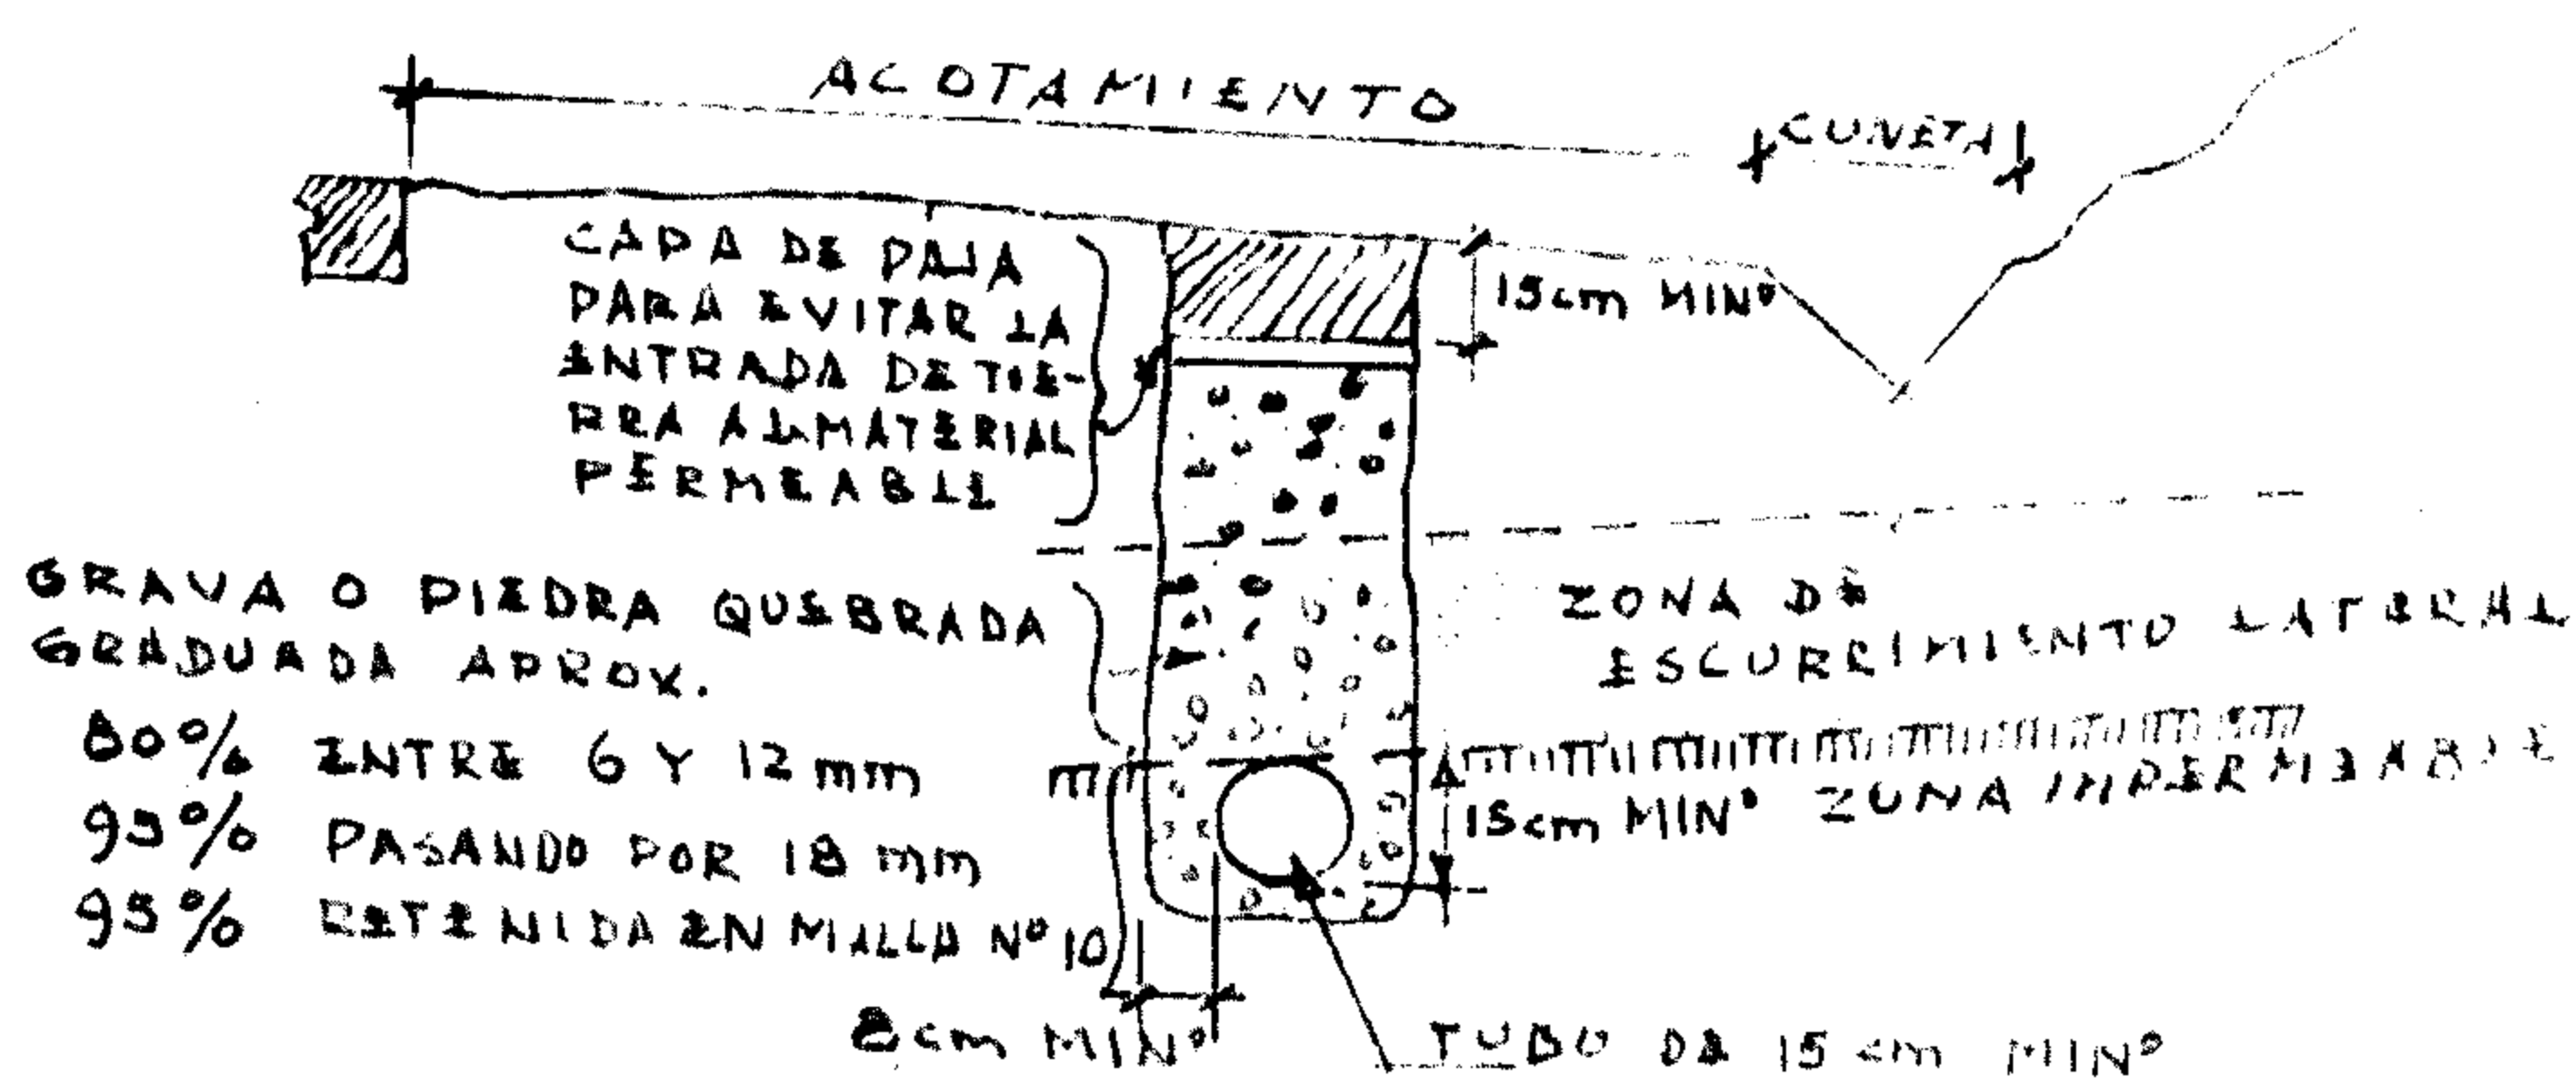 ACOTAMIENTO
CUNETA
CAPA DE PAJA
PARA EVITAR LA
ENTRADA DE TIE-
RRA AL MATERIAL
PERMEABLE
15cm MINº
GRAVA O PIEDRA QUEBRADA
GRADUADA APROX.
80% ENTRE 6 Y 12 mm
95% PASANDO POR 18 mm
95% RETENIDA EN MALLA Nº 10
ZONA DE
ESCURRIMIENTO LATERAL
15cm MINº ZONA IMPERMEABLE
8cm MINº
TUBO DE 15 cm MINº